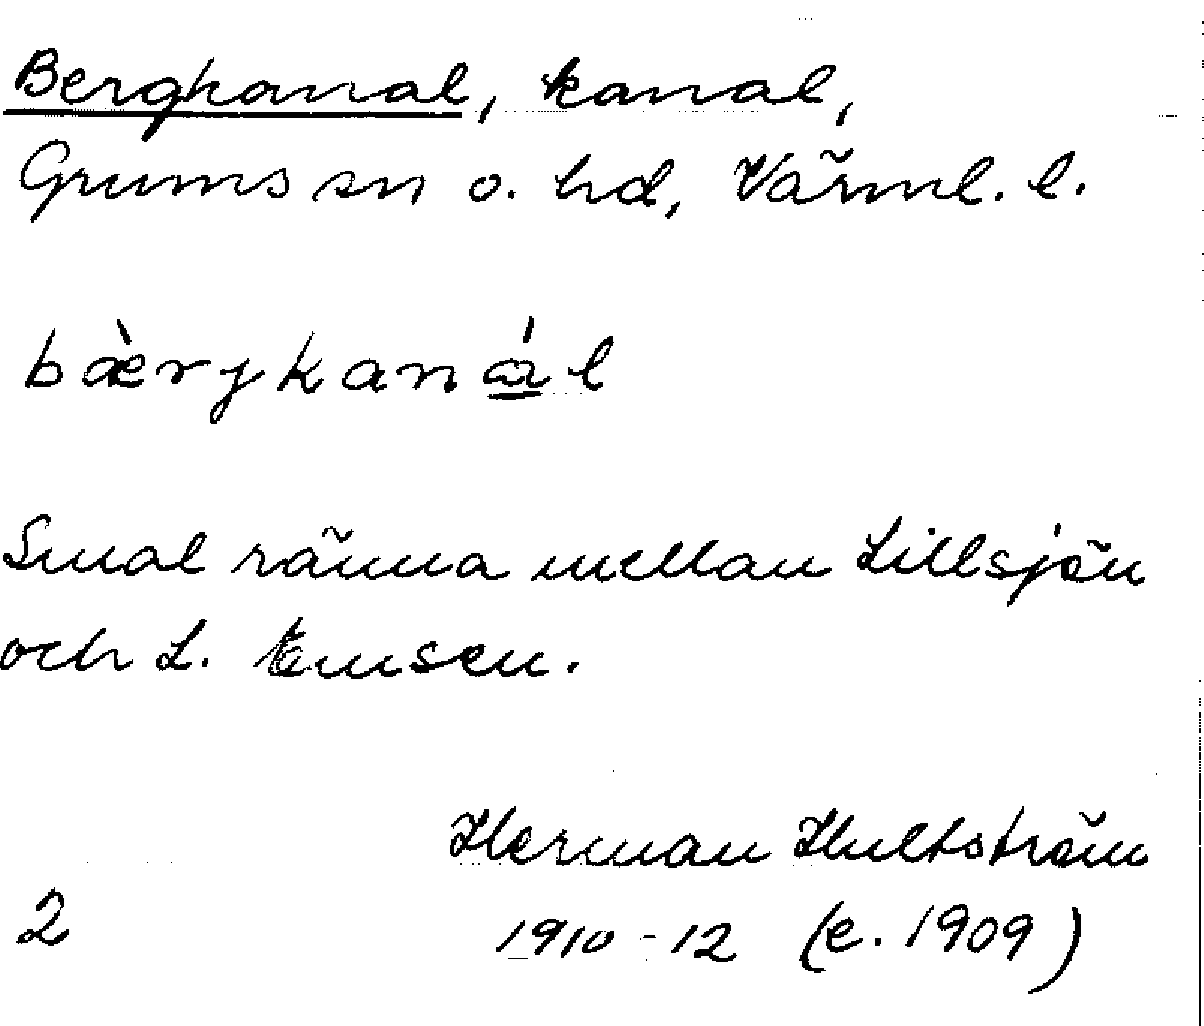 Bergkanal, kanal,
Grums sn o. hd, Värml. l.
bæ̀rjkaná̲l
Smal ränna mellan Lillsjön
och L. Emsen.
Herman Hultström
2 1910-12 (e. 1909)